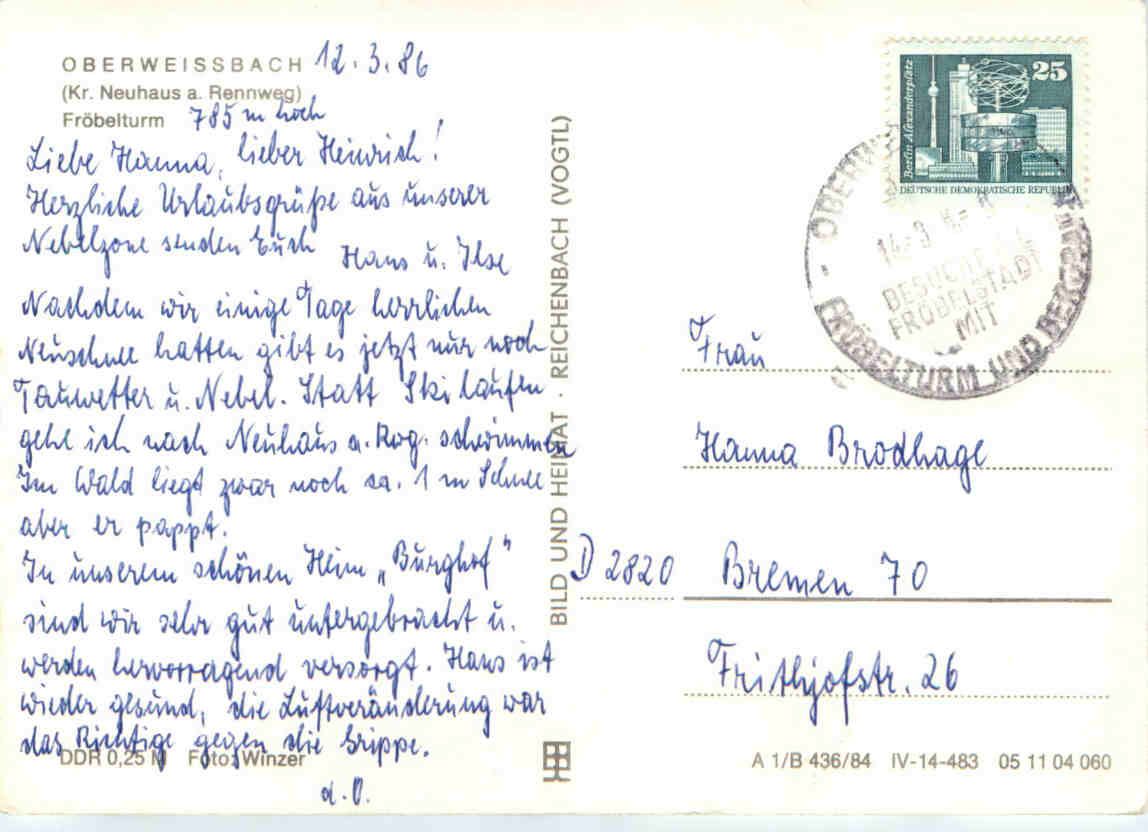 OBERWEISSBACH 12.3.86
(Kr. Neuhaus a. Rennweg)
Fröbelturm 785 m hoch
Liebe Hanna, lieber Heinrich!
Herzliche Urlaubsgrüße aus unserer
Nebelzone senden Euch Hans u. Ilse
Nachdem wir einige Tage herrlichen
Neuschnee hatten gibt es jetzt nur noch
Tauwetter u. Nebel. Statt Ski laufen
gehe ich nach Neuhaus a. Rwg. schwimmen
Im Wald liegt zwar noch ca. 1 m Schnee
aber er pappt.
In unserem schönen Heim „Burghof"
sind wir sehr gut untergebracht u.
werden hervorragend versorgt. Hans ist
wieder gesund, die Luftveränderung war
das Richtige gegen die Grippe.
d.O.
DDR 0,25 M Foto: Winzer
BILD UND HEIMAT · REICHENBACH (VOGTL)
25
Berlin Alexanderplatz
DEUTSCHE DEMOKRATISCHE REPUBLIK
BESUCHT
FRÖBELSTADT
MIT
FRÖBELTURM UND
Frau
Hanna Brodhage
D 2820 Bremen 70
Frithjofstr. 26
A 1/B 436/84 IV-14-483 05 11 04 060